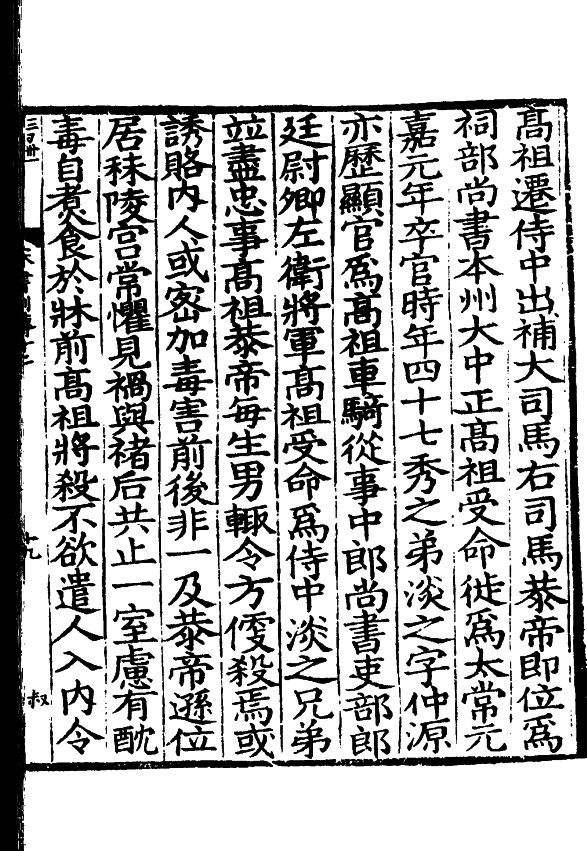 髙祖遷侍中出補大司馬右司馬恭帝即位爲
祠部尚書本州大中正髙祖受命徙爲太常元
嘉元年卒官時年四十七秀之弟淡之字仲源
亦歷顯官爲髙祖車騎從事中郎尚書吏部郎
廷尉卿左衛將軍髙祖受命爲侍中淡之兄弟
並盡忠事髙祖恭帝每生男輙令方便殺焉或
誘賂內人或密加毒害前後非一及恭帝遜位
居秣陵宫常懼見禍與褚后共止一室慮有酖
毒自煮食於牀前髙祖將殺不欲遣人入内令
三百卅
十九
叔